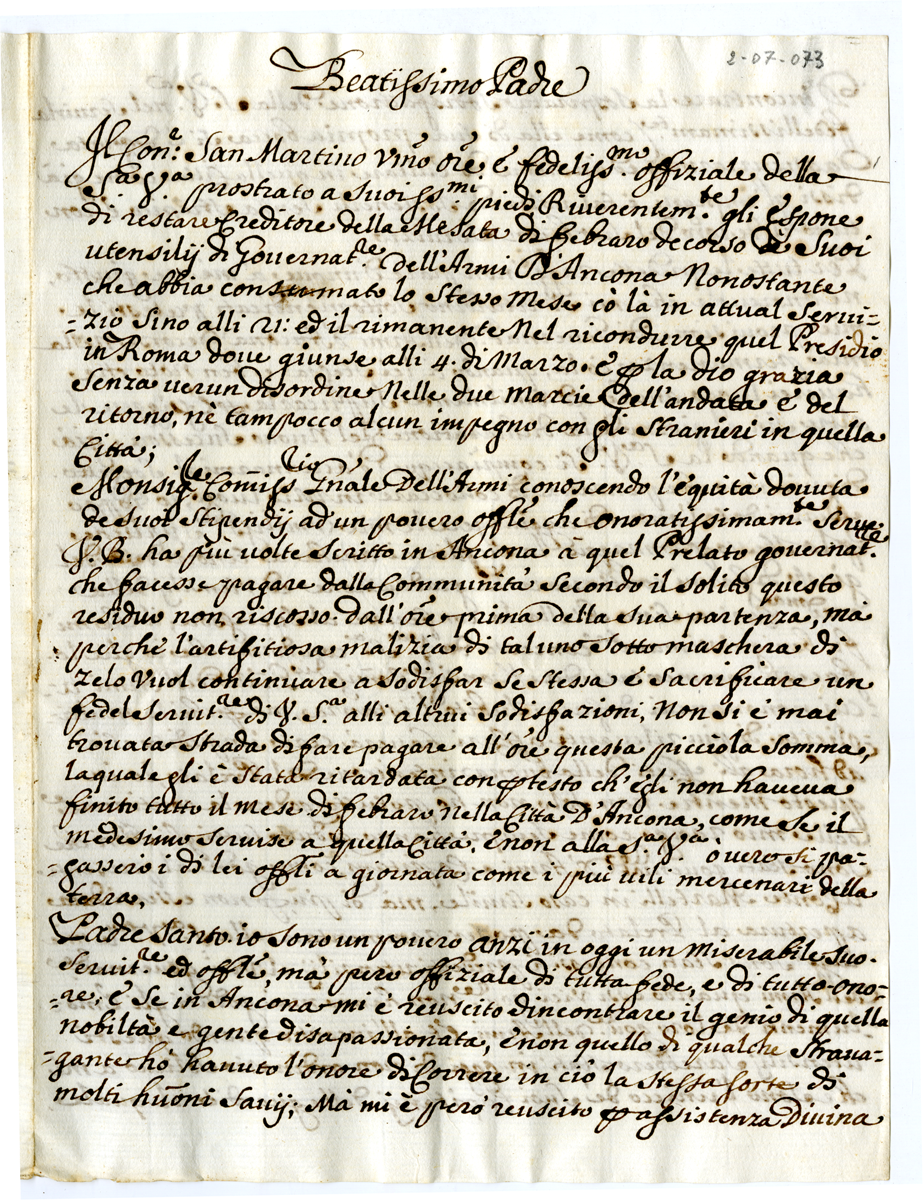 2-07-073
Beatissimo Padre
Il Con.r: San Martino Vm̃o or̃e è fedeliss.mo offiziale della
S.a V.a prostrato a suoi ss.mi piedi Riverentem.te gli espone
di restare Creditore della Mesata di febraro decorso de suoi
utensilij di Governat.re dell'Armi D'Ancona Nonostante
che abbia consumato lo stesso Mese cò là in attual servi-
=zio sino alli 21: ed il rimanente Nel ricondurre quel Presidio
in Roma dove giunse alli 4. di Marzo. è ꝑ la dio grazia
senza verun disordine Nelle due marcie dell'andata è del
ritorno, nè tampocco alcun impegno con gli stranieri in quella
Città;
Monsig.re Com̃iss.rio Gñale Dell'Armi conoscendo l'equità dovuta
de suoi stipendij ad un povero offl̃e che onoratissimam.te serve
V.B. ha più volte scritto in Ancona à quel Prelato governat.re
che facesse pagare dalla Communità secondo il solito questo
residuo non riscosso dall'or̃e prima della sua partenza, mà
perche l'artifitiosa malizia di taluno sotto maschera di
zelo vuol continuare a sodisfar se stessa è sacrificare un
fedel servit.re di V. S.a alli altrui sodisfazioni, Non si è mai
trovata strada di fare pagare all'or̃e questa picciola somma,
la quale gli è stata ritardata con ꝓtesto ch'egli non haveva
finito tutto il mese di febraro nella Città D'Ancona, come se il
medesimo servise a quella Città, è non alla S.a V.a ò vero si pa-
=gassero i di lei offl̃i a giornata come i più vili mercenari della
terra.
Padre Santo io sono un povero anzi in oggi un miserabile suo
servit.re ed offl̃e, mà però offiziale di tutta fede, e di tutto ono-
=re, è se in Ancona mi è reuscito d'incontrare il genio di quella
nobiltà e gente disapassionata, è non quello di qualche strava-
=gante hò havuto l'onore di Correre in ciò la stessa sorte di
molti huõni savij; Mà mi è però reuscito ꝑ assistenza Divina